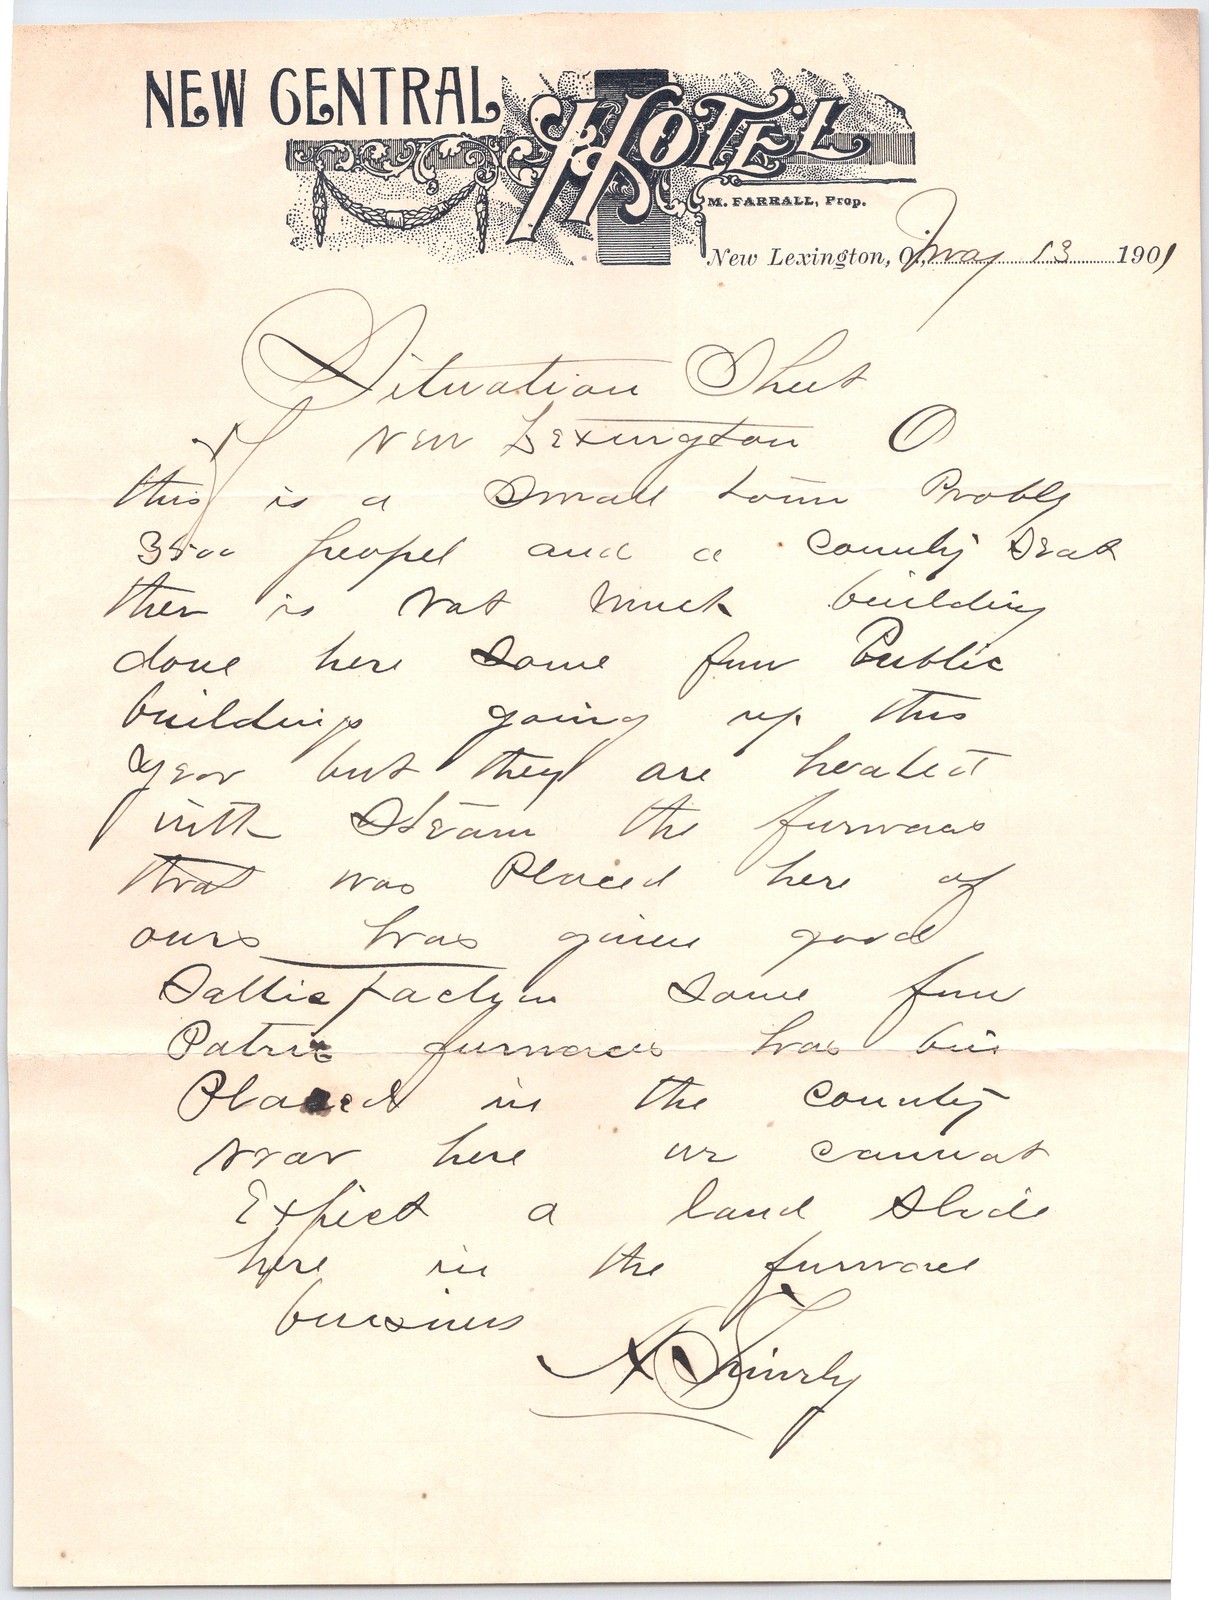 NEW CENTRAL HOTEL
M. FARRALL, Prop.
New Lexington, O., May 13 1901
Situation Sheet
of New Lexington O
this is a Small town Probly
3500 peopel and a county Seat
ther is not much building
done here Some few Public
buildings going up this
Year but they are heated
with Steam the furnaces
that was Placed here of
ours has given good
Sattisfactyon Some few
Patric furnaces has bin
Placed in the county
near here we cannot
Expect a land Slide
here in the furnace
buisiness